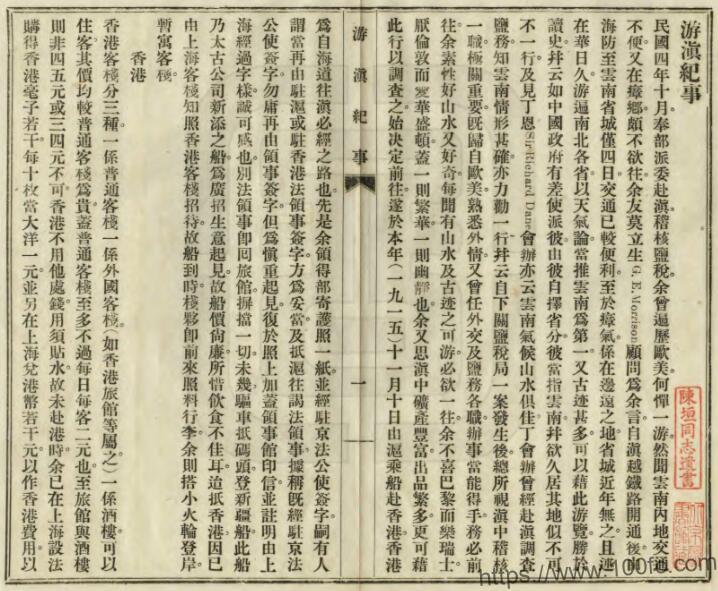 游滇紀事
民國四年十月奉部派委赴滇稽核鹽稅。余曾遍歷歐美何憚一游。然聞雲南內地交通
不便又在瘴鄉頗不欲往余友莫立生 G. E. Morrison 顧問爲余言自滇越鐵路開通後由
海防至雲南省城僅四日交通已較便利至於瘴氣係在邊遠之地省城近年無之且
在華日久游遍南北各省以天氣論當推雲南爲第一又古蹟甚多可以藉此游覽勝於
讀史幷云如中國政府有差使派彼由彼自擇省分彼當指雲南幷欲久居其地似不可
不一行及見丁恩 Sir Richard Dane 會辦亦云雲南氣候山水俱佳丁會辦曾經赴滇調查
鹽務知雲南情形甚確亦力勸一行幷云自下關鹽稅局一案發生後總所視滇中稽核
一職極關重要旣歸自歐美熟悉外情又曾任外交及鹽務各職辦事當能得手務必前
往余素性好山水又好奇每聞有山水及古迹之可游必欲一往余不喜巴黎而樂瑞士
厭倫敦而愛華盛頓蓋一則繁華一則幽靜也余又思滇中礦產豐富出品繁多更可藉
此行以調查之始決定前往遂於本年(一九一五)十一月十日由滬乘船赴香港香港
游滇紀事
一
爲自海道往滇必經之路也先是余領得部寄護照一紙並經駐京法公使簽字嗣有人
謂當再由駐滬或駐香港法領事簽字方爲妥當及抵滬往謁法領事據稱旣經駐京法
公使簽字勿庸再由領事簽字但爲愼重起見復於照上加蓋領事館印信並註明由上
海經過字樣誠可感也別法領事卽囘旅館摒擋一切未幾驅車抵碼頭登新疆船此船
乃太古公司新添之船爲廣招生意起見故船價尙廉所惜飲食不佳耳迨抵香港因已
由上海客棧知照香港客棧招待故船到時棧夥卽前來照料行李余則搭小火輪登岸
暫寓客棧
香港
香港客棧分三種一係普通客棧一係外國客棧(如香港旅館等屬之)一係酒樓可以
住客其價均較普通客棧爲貴蓋普通客棧至多不過每日每客二元也至旅館與酒樓
則非四五元或三四元不可香港不用他處錢用須貼水故未赴港時余已在上海設法
購得香港毫子若干每十枚當大洋一元並另在上海兌港幣若干元以作香港費用以
陳垣同志遺書